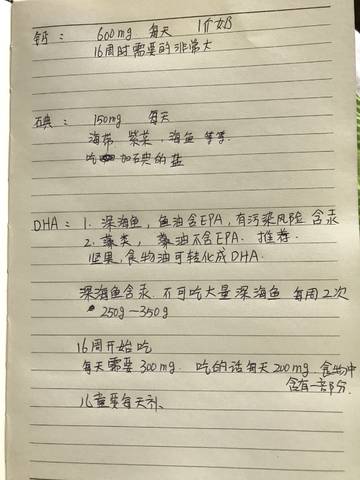 钙： 600mg 每天 1斤奶
16周时需要的非常大
碘： 150mg 每天
海带 紫菜，海鱼 等等
吃 加碘的盐
DHA： 1. 深海鱼，鱼油含EPA，有污染风险 含汞
2. 藻类，藻油不含EPA. 推荐.
坚果，食物油可转化成DHA.
深海鱼含汞 不可吃大量深海鱼 每周2次
250g—350g
16周开始吃
每天需要300mg. 吃的话每天200mg 食物中
含有一部分.
儿童要每天补、